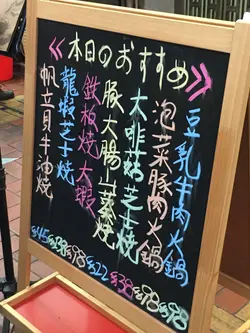 <<本日のおすすめ>>
豆乳牛肉火鍋 $98
泡菜豚肉火鍋 $98
大啡菇芝士焼 $38
豚大腸 焼 $22
鉄板焼大蝦 $98
龍蝦芝士焼
帆立貝牛油焼 $45